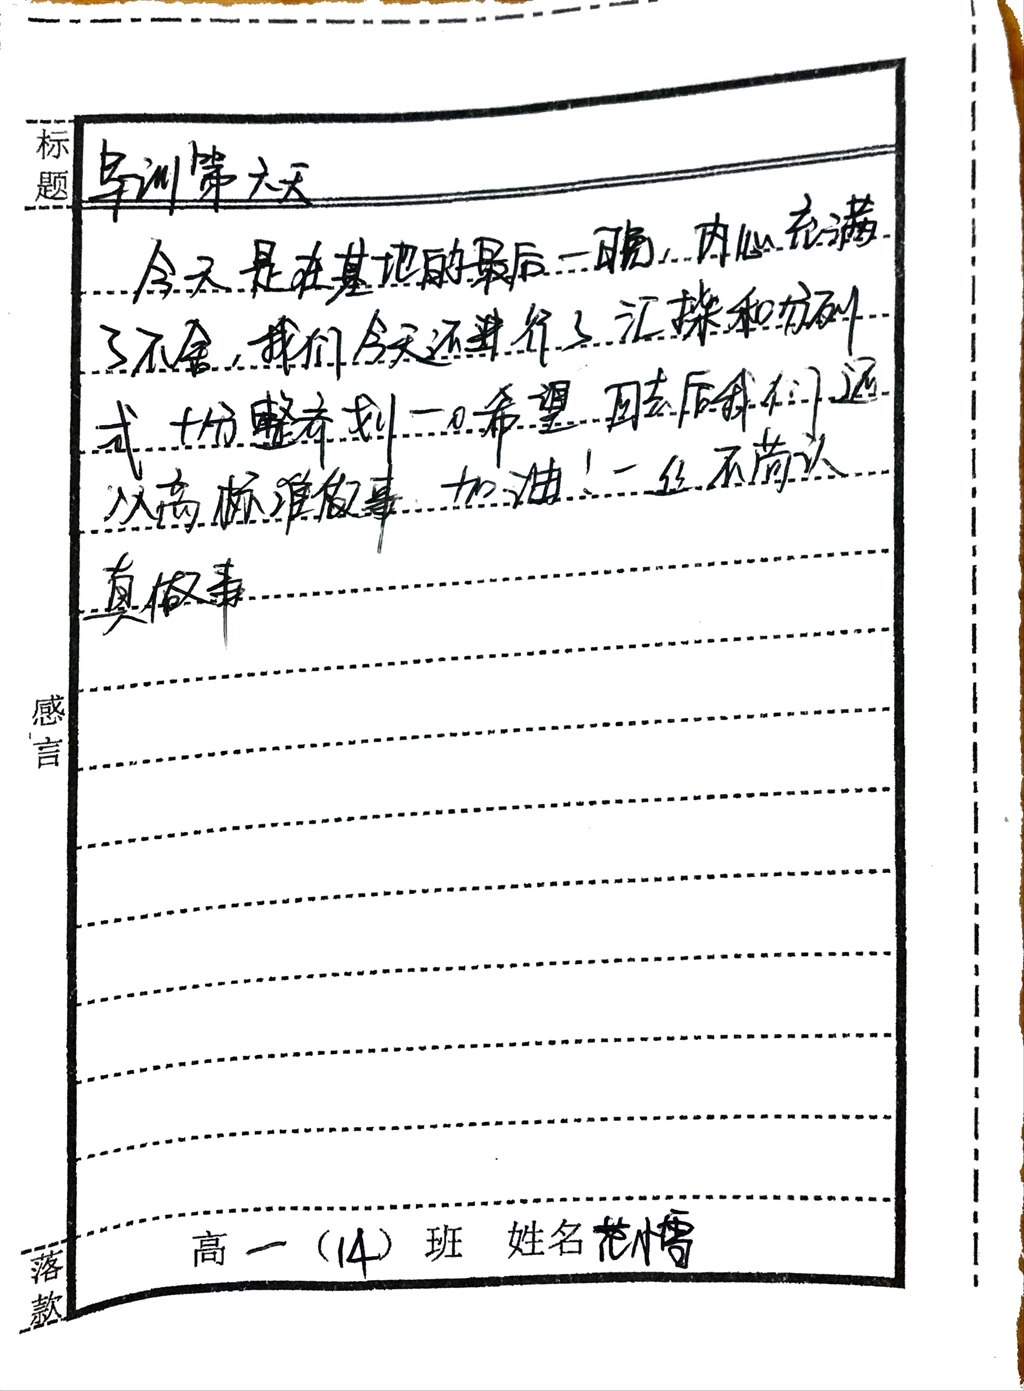 标题
军训第六天
今天是在基地的最后一晚，内心充满
了不舍，我们今天还进行了汇操和分列
式 十分整齐划一。希望 回去后我们还
以高标准做事 加油！一丝不苟认
真做事
感言
落款
高一（14）班 姓名范小雪